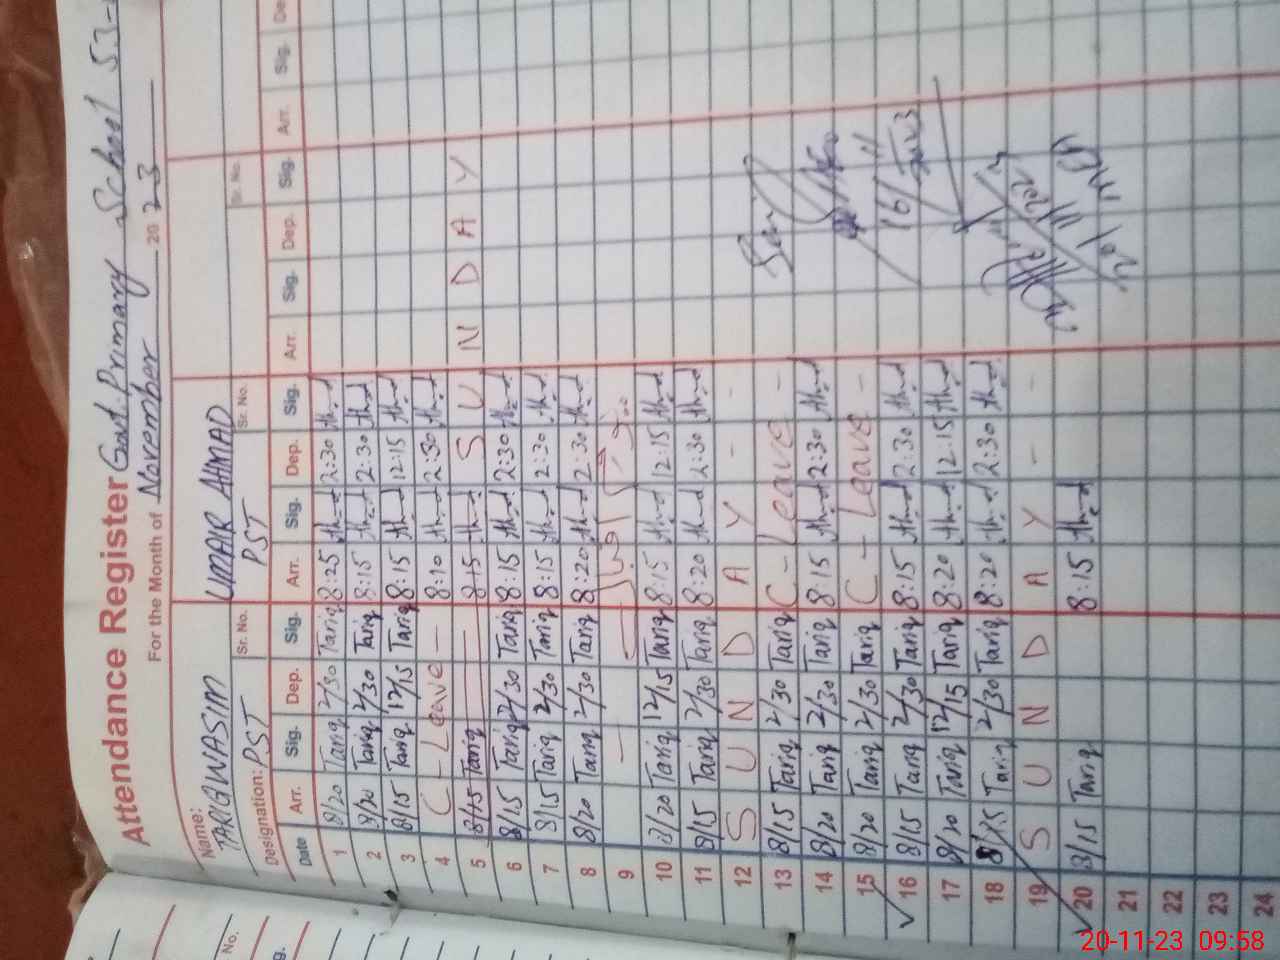 Attendance Register Govt. Primary School 53-
For the Month of November 2023
Name: TARIQ WASIM UMAR AHMAD
Designation: PST Sr. No. PST Sr. No. Sr. No.
Date Arr. Sig. Dep. Sig. Arr. Sig. Dep. Sig. Arr. Sig. Dep. Sig. Arr. Sig. De
1 8/20 Tariq 2/30 Tariq 8:25 2:30
2 8/20 Tariq 2/30 Tariq 8:15 2:30
3 8/15 Tariq 12/15 Tariq 8:15 12:15
4 C - Leave - 8:10 2:30
5 8/15 Tariq 8:15 S U N D A Y
6 8/15 Tariq 2/30 Tariq 8:15 2:30
7 8/15 Tariq 2/30 Tariq 8:15 2:30
8 8/20 Tariq 2/30 Tariq 8:20 2:30
9
10 8/20 Tariq 12/15 Tariq 8:15 12:15
11 8/15 Tariq 2/30 Tariq 8:20 2:30
12 S U N D A Y - -
13 8/15 Tariq 2/30 Tariq C - Leave -
14 8/20 Tariq 2/30 Tariq 8:15 2:30
15 8/20 Tariq 2/30 Tariq C - Leave -
16 8/15 Tariq 2/30 Tariq 8:15 2:30 16/11/2023
17 8/20 Tariq 12/15 Tariq 8:20 12:15
18 8/15 Tariq 2/30 Tariq 8:20 2:30
19 S U N D A Y - -
20 8/15 Tariq 8:15
21
22
23
24
No.
g.
20-11-23 09:58